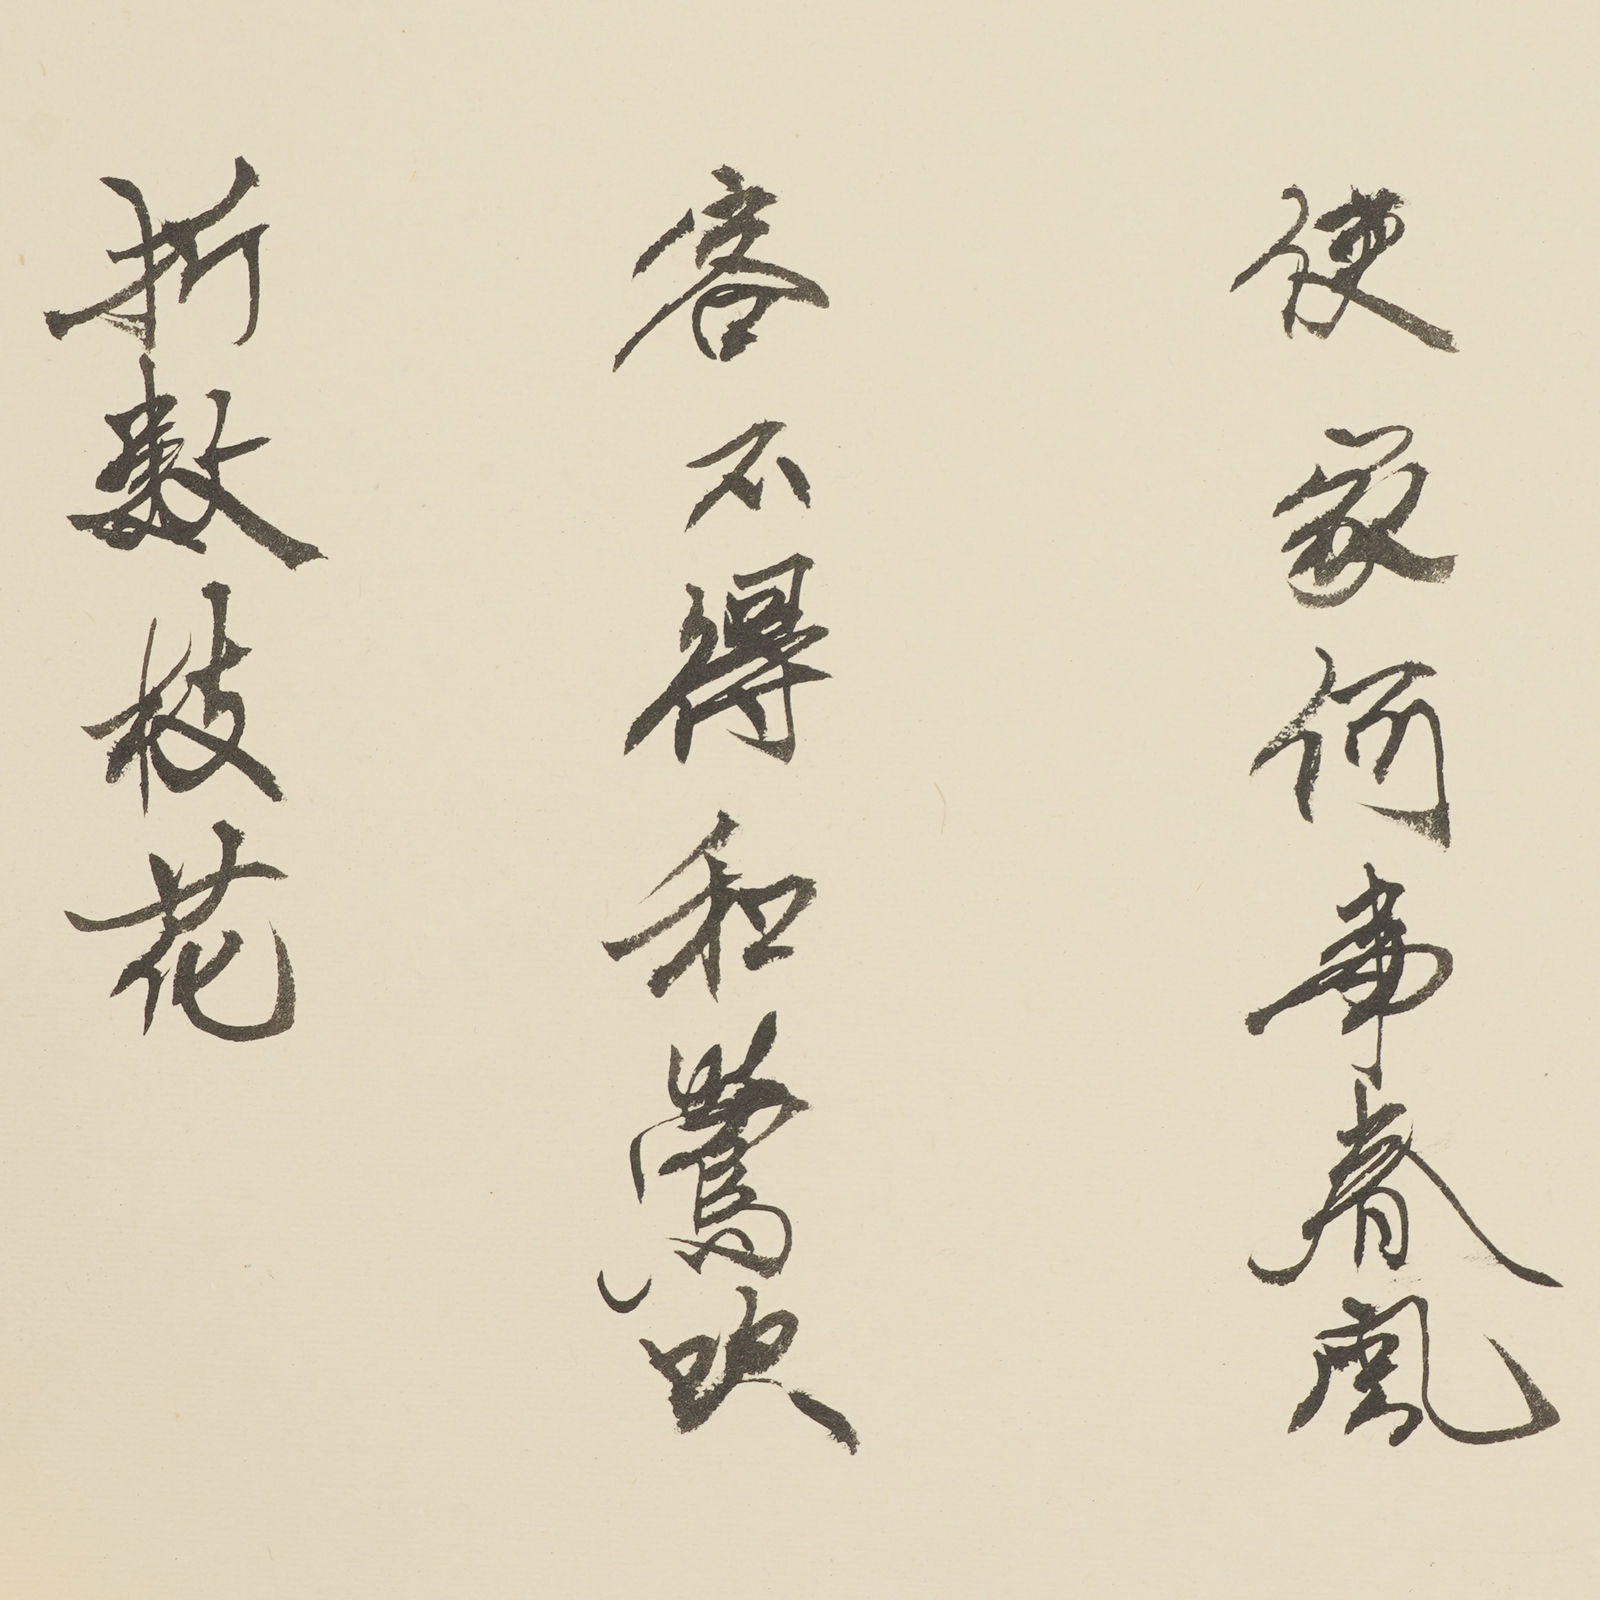 使家何事春風
容不得和鶯吹
折數枝花